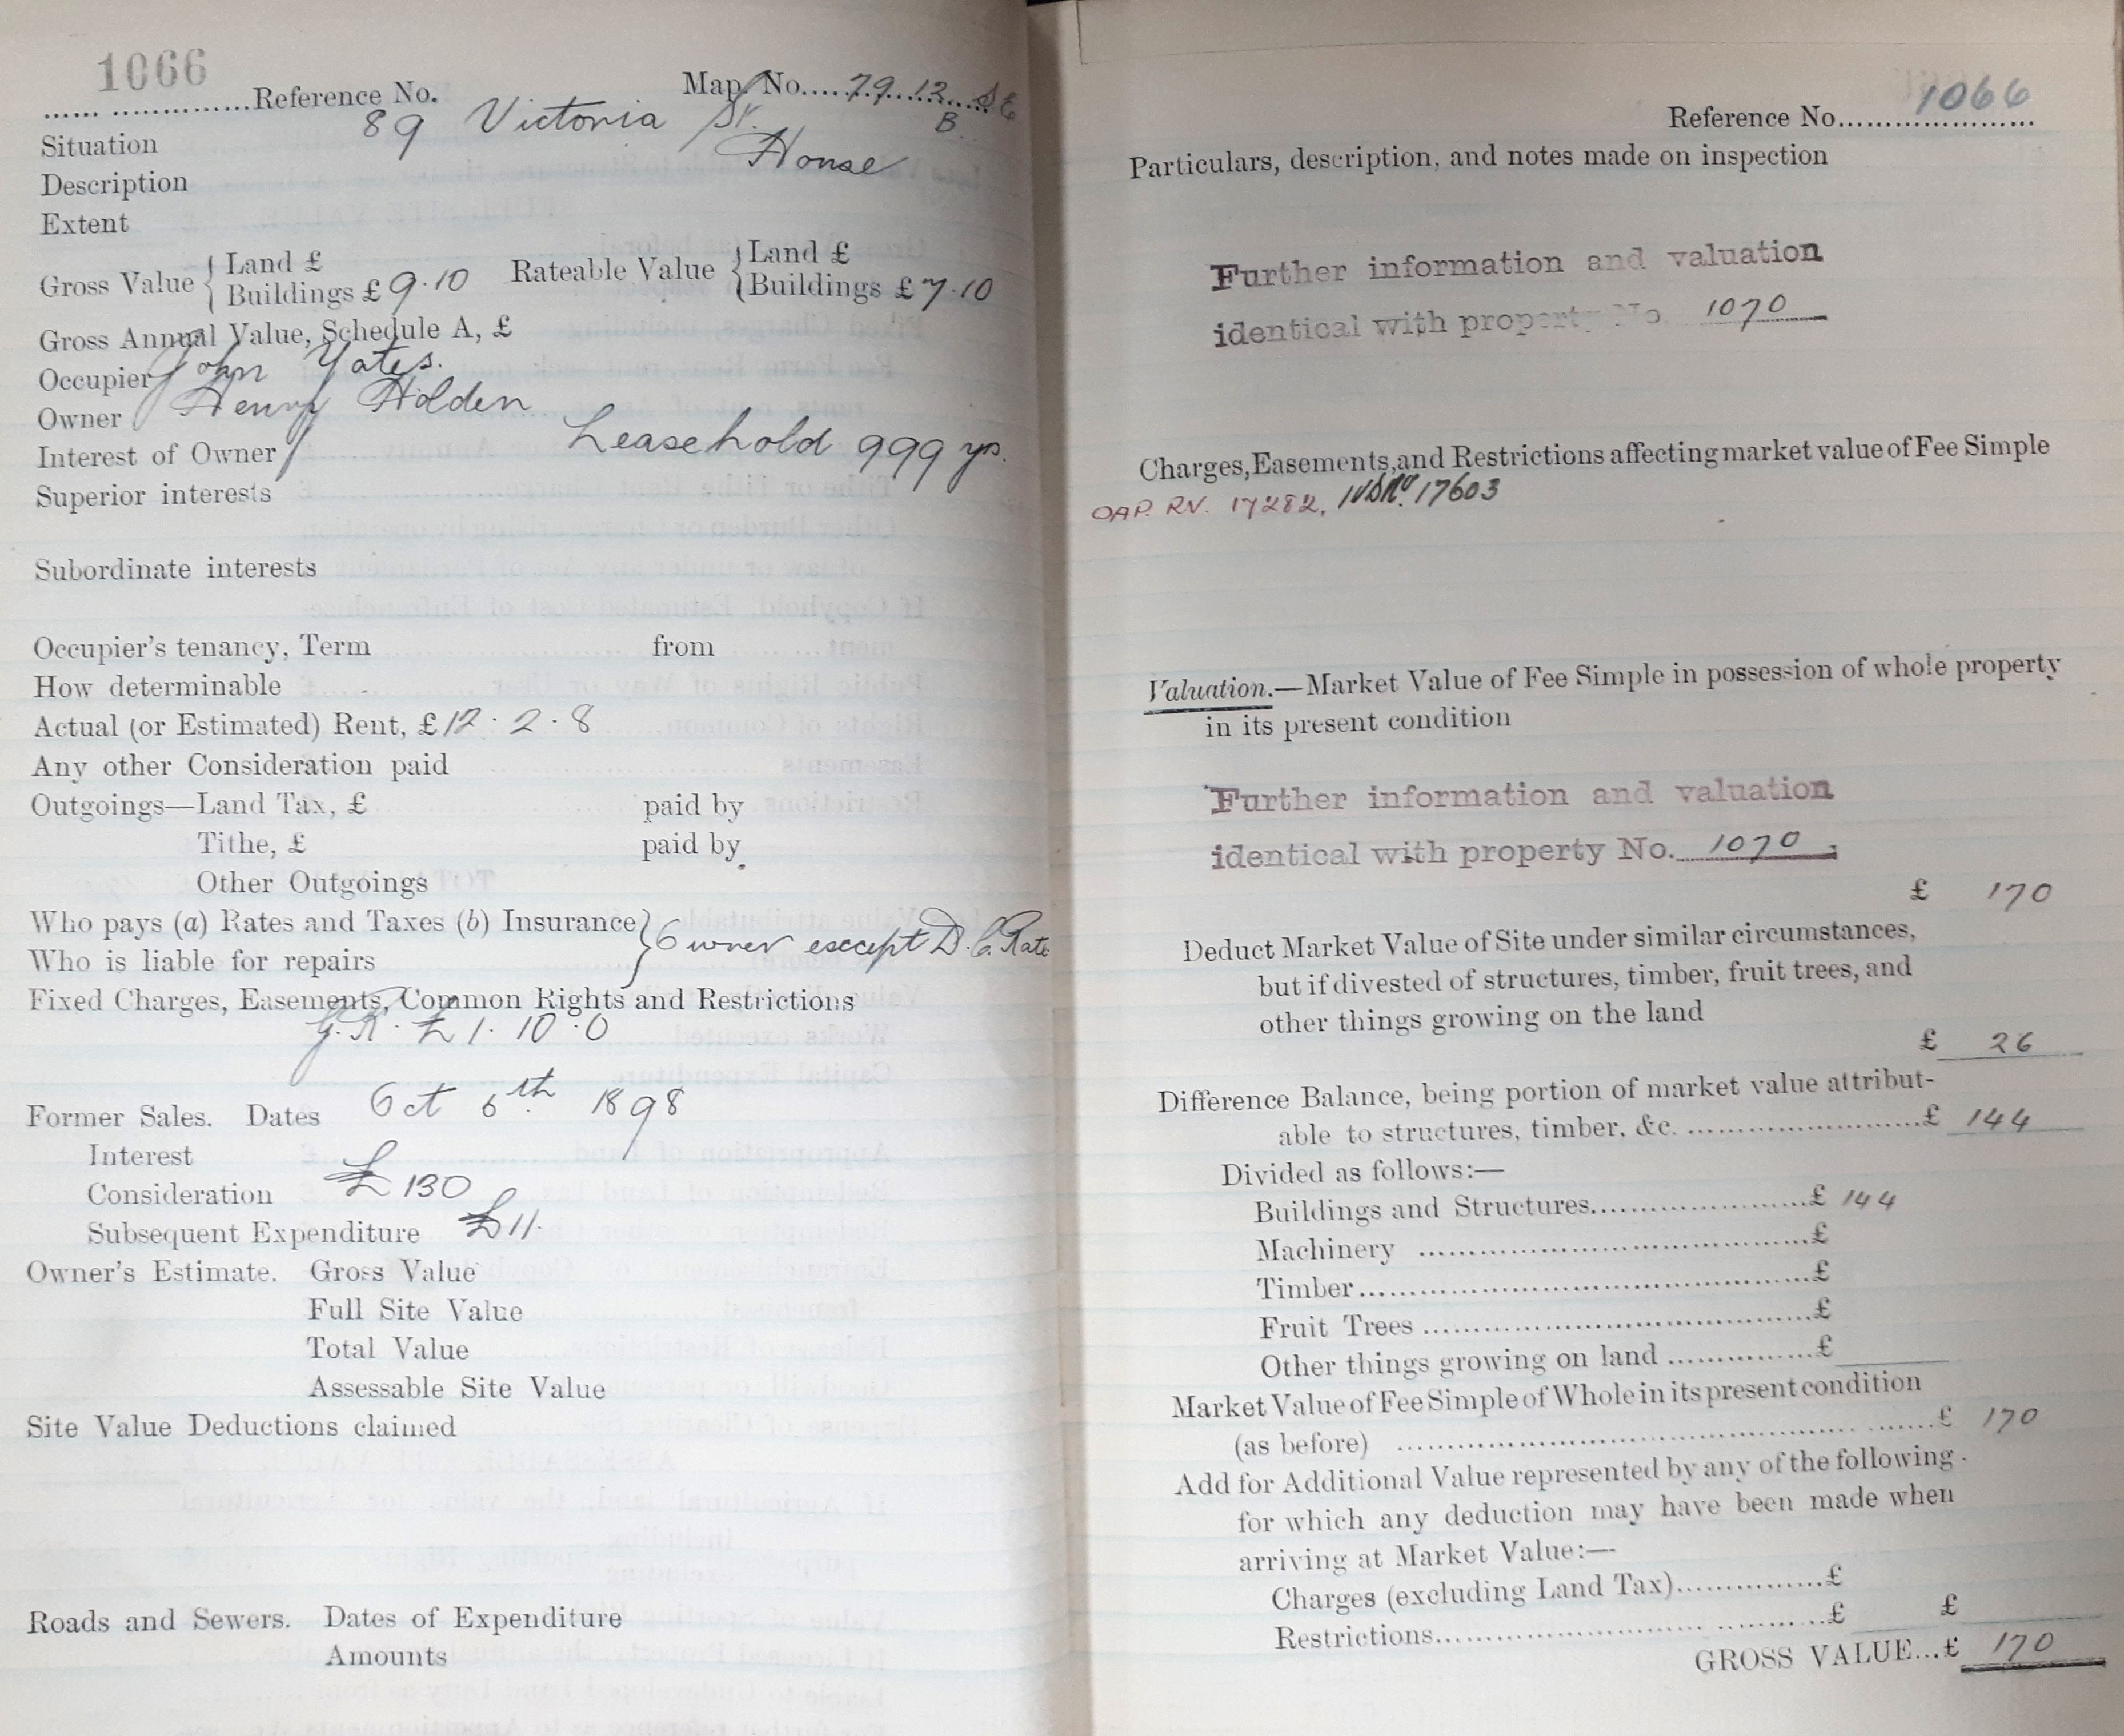 1066
Reference No. Map. No. 79.12. SE
B.
Situation 89 Victoria St.
Description House
Extent
Gross Value { Land £ Rateable Value { Land £
Buildings £ 9.10 Buildings £ 7.10
Gross Annual Value, Schedule A, £
Occupier John Yates.
Owner Henry Holden
Interest of Owner Leasehold 999 yrs.
Superior interests
Subordinate interests
Occupier's tenancy, Term from
How determinable
Actual (or Estimated) Rent, £ 12. 2. 8
Any other Consideration paid
Outgoings—Land Tax, £ paid by
Tithe, £ paid by
Other Outgoings
Who pays (a) Rates and Taxes (b) Insurance } Owner except D. C. Rate
Who is liable for repairs
Fixed Charges, Easements, Common Rights and Restrictions
G.R. £1. 10. 0
Former Sales. Dates Oct 6th 1898
Interest
Consideration £130
Subsequent Expenditure £11.
Owner's Estimate. Gross Value
Full Site Value
Total Value
Assessable Site Value
Site Value Deductions claimed
Roads and Sewers. Dates of Expenditure
Amounts
Reference No. 1066
Particulars, description, and notes made on inspection
Further information and valuation
identical with property No. 1070
Charges, Easements, and Restrictions affecting market value of Fee Simple
OAP. RV. 17282, 17603
Valuation.—Market Value of Fee Simple in possession of whole property
in its present condition
Further information and valuation
identical with property No. 1070
£ 170
Deduct Market Value of Site under similar circumstances,
but if divested of structures, timber, fruit trees, and
other things growing on the land
£ 26
Difference Balance, being portion of market value attribut-
able to structures, timber, &c. £ 144
Divided as follows:—
Buildings and Structures £ 144
Machinery £
Timber £
Fruit Trees £
Other things growing on land £
Market Value of Fee Simple of Whole in its present condition
(as before) £ 170
Add for Additional Value represented by any of the following
for which any deduction may have been made when
arriving at Market Value:—
Charges (excluding Land Tax) £
Restrictions £ £
GROSS VALUE...£ 170